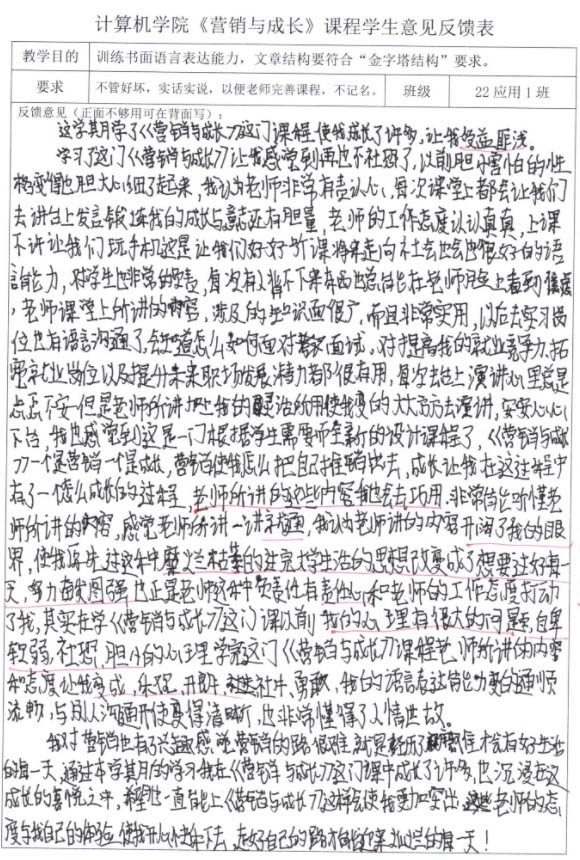 计算机学院《营销与成长》课程学生意见反馈表
教学目的 训练书面语言表达能力，文章结构要符合“金字塔结构”要求。
要求 不管好坏，实话实说，以便老师完善课程，不记名。 班级 22应用1班
反馈意见（正面不够用可在背面写）：
这学其月学了《营销与成长》这门课程，使我成长了许多，让我受益匪浅。
学习了这门《营销与成长》让我感觉到再也不社恐了，以前胆小害怕的性
格变得也胆大心细了起来，我认为老师非学有责认心，每次课堂上都会让我们
去讲台上发言锻炼我的成长与意志还有胆量，老师的工作态度认认真真，上课
不许让我们玩手机这是让我们好好听课将来走向社会也会也很好的语
言能力，对学生也非常的负责，每次有人背不下来东西也总能在老师
，老师课堂上所讲的内容，涉及的知识面很广，而且非常实用，以后去实习岗
位也有语言沟通了，会知道怎么如何面对面试，对提高我的就业竞争力、拓
宽就业岗位以及提升未来职场发展潜力都很有用，每次去台上演讲心里总是
忐忑不安，但是老师所讲加上我的灵活所用使我变的大大方方去演讲，安安心心
下台，我也感觉到这是一门根据学生需要而全新的设计课程了，《营销与成长
》一个是营销一个是成长，营销使我怎么把自己推销出去，成长让我在这过程中
有了一怎么成长的过程，老师所讲的这些内容我也会去巧用，非常能听懂老
师所讲的内容，感觉老师所讲一讲就通，我认为老师讲的内容开阔了我的眼
界，使我原先这本中靡义兰枯燥的过完大学生活的思想改变成了想要过好每一
天，努力奋发图强，也正是老师这本中负责任有责任心和老师的工作态度打动
了我，其实在学《营销与成长》这门课以前，我的心理有很大的问题，自卑
软弱，社恐，胆小的心理学完这门《营销与成长》课程老师所讲的内容
和态度让我变成，乐观，开朗，社牛、勇敢，我的语言表达能力变的通顺
流畅，与别人沟通开始变得清晰，也非常懂得了人情世故。
我对营销也有了兴趣感觉营销的路很难，就是
的每一天，通过本学其月的学习我在《营销与成长》这门课中成长了许多，也沉浸在这
成长的喜悦之中，希望也一直能上《营销与成长》这样会使我更加突出，老师的态
度与我自己的体验，使我开心快乐下去，走好自己的路，灿烂的每一天！